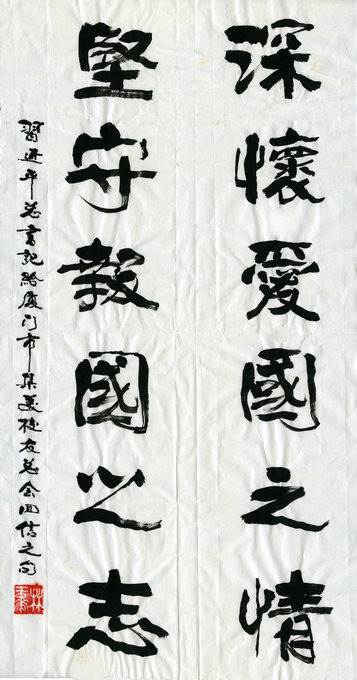 深懷愛國之情
堅守報國之志
習近平總書記給廈门市集美校友總会回信之句